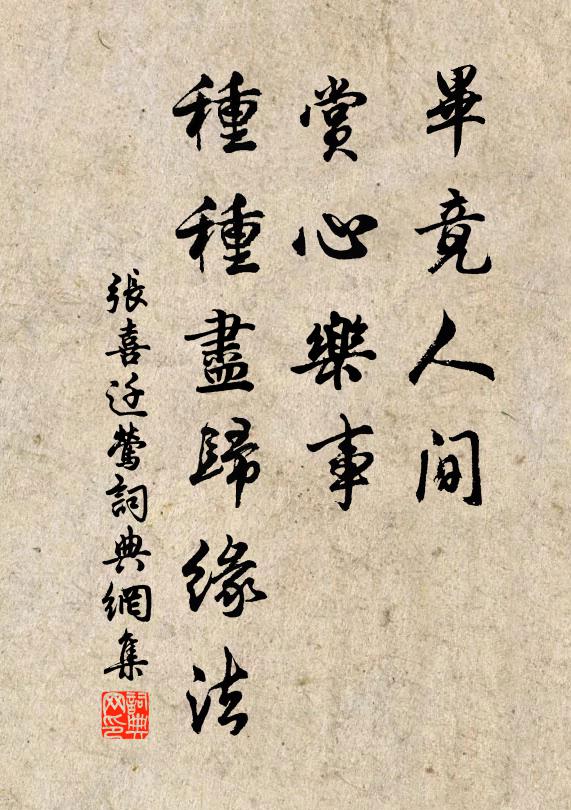 畢竟人间
賞心樂事
種種盡歸缘法
張喜迁鶯詞典網集
詞典网印